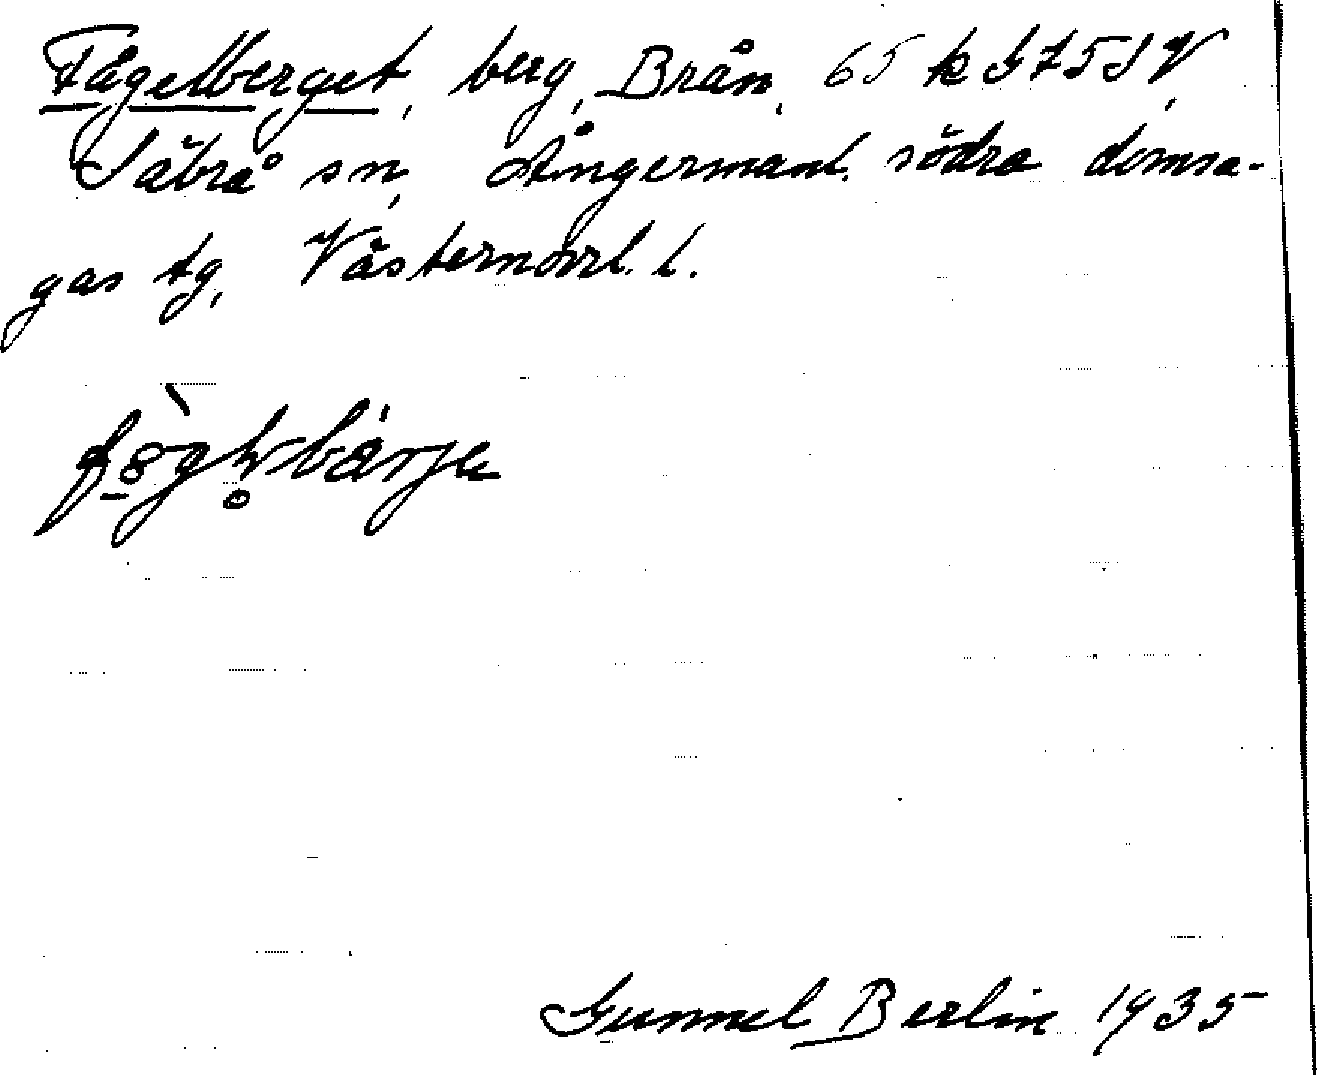 Fågelberget, berg, Brån, 65 k S 75 S V,
Säbrå sn, Ångermanl. södra domsa-
gas tg, Västernorrl. l.
Gunnel Berlin 1935